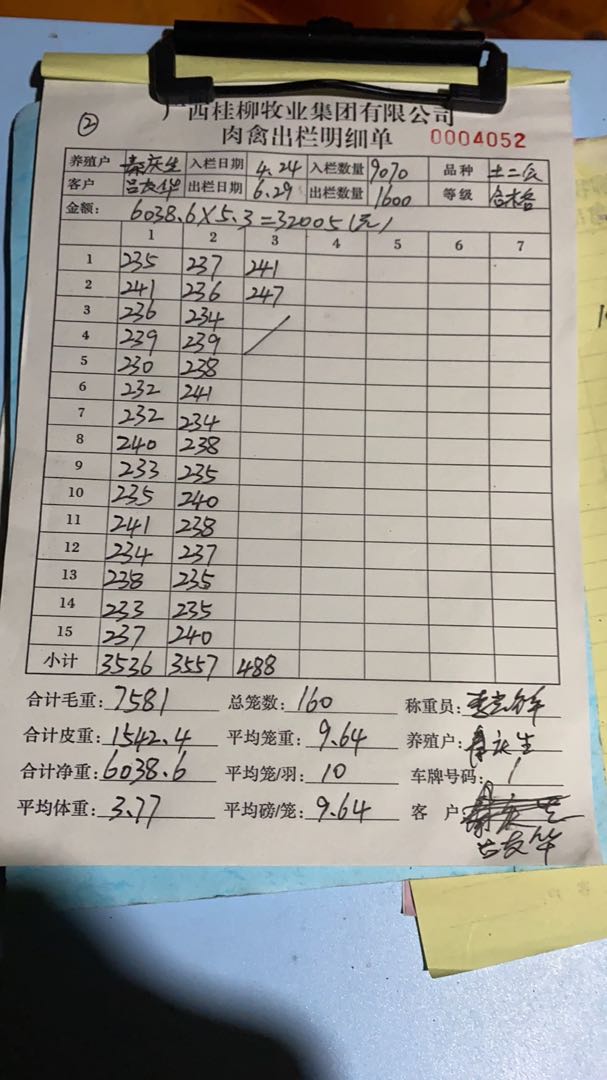 ②
广西桂柳牧业集团有限公司
肉禽出栏明细单 0004052
养殖户 秦庆生 入栏日期 4.24 入栏数量 9070 品种 土二
客户 吕友华 出栏日期 6.29 出栏数量 1600 等级 合格
金额: 6038.6×5.3=32005(元)
1 2 3 4 5 6 7
1 235 237 241
2 241 236 247
3 236 234
4 239 239
5 230 238
6 232 241
7 232 234
8 240 238
9 233 235
10 235 240
11 241 238
12 234 237
13 238 235
14 233 235
15 237 240
小计 3536 3557 488
合计毛重: 7581 总笼数: 160 称重员:
合计皮重: 1542.4 平均笼重: 9.64 养殖户: 秦庆生
合计净重: 6038.6 平均笼/羽: 10 车牌号码: 1
平均体重: 3.77 平均磅/笼: 9.64 客 户:
吕友华